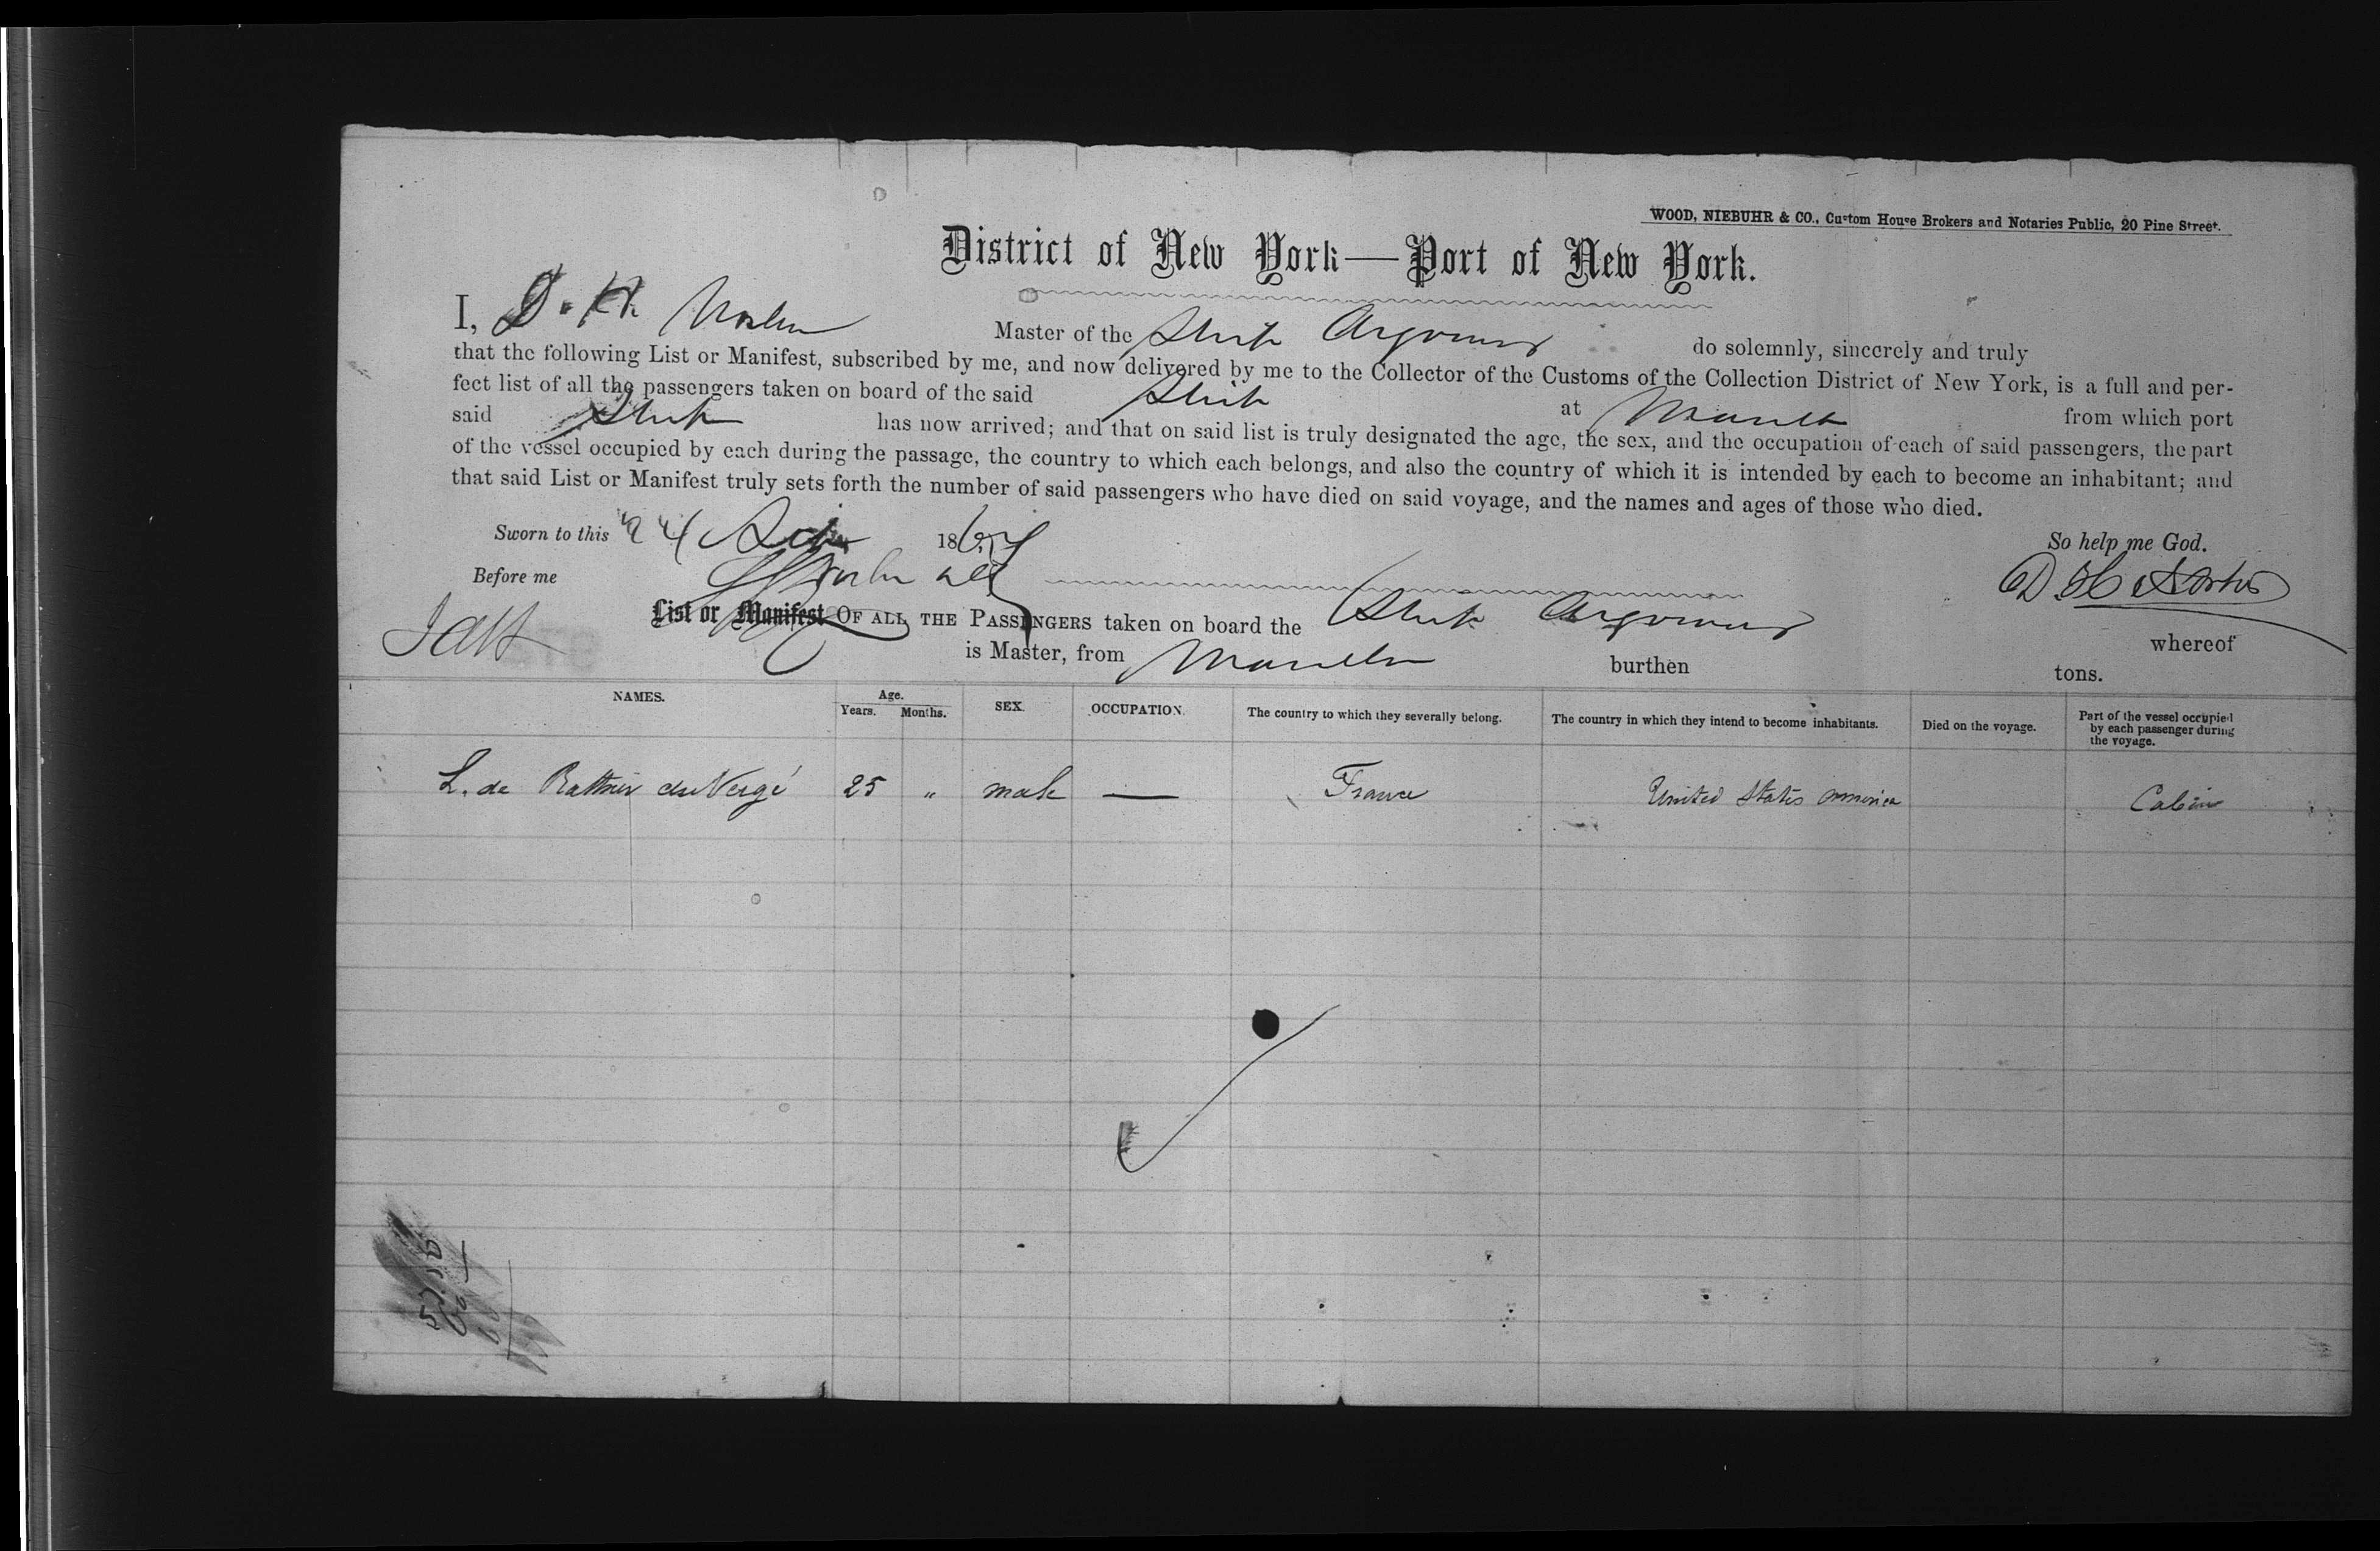 WOOD, NIEBUHR & CO., Custom House Brokers and Notaries Public, 20 Pine Street.
District of New York—Port of New York.
I, D. H. Master of the Ship Argonaut do solemnly, sincerely and truly
that the following List or Manifest, subscribed by me, and now delivered by me to the Collector of the Customs of the Collection District of New York, is a full and per-
fect list of all the passengers taken on board of the said Ship at Manila from which port
said Ship has now arrived; and that on said list is truly designated the age, the sex, and the occupation of each of said passengers, the part
of the vessel occupied by each during the passage, the country to which each belongs, and also the country of which it is intended by each to become an inhabitant; and
that said List or Manifest truly sets forth the number of said passengers who have died on said voyage, and the names and ages of those who died.
Sworn to this 24 186 So help me God.
Before me D H
List or Manifest OF ALL THE PASSENGERS taken on board the Ship Argonaut whereof
is Master, from Manila burthen tons.
NAMES. Age. Years. Months. SEX. OCCUPATION. The country to which they severally belong. The country in which they intend to become inhabitants. Died on the voyage. Part of the vessel occupied by each passenger during the voyage.
L. de du Vergé 25 " male — France United States America Cabin